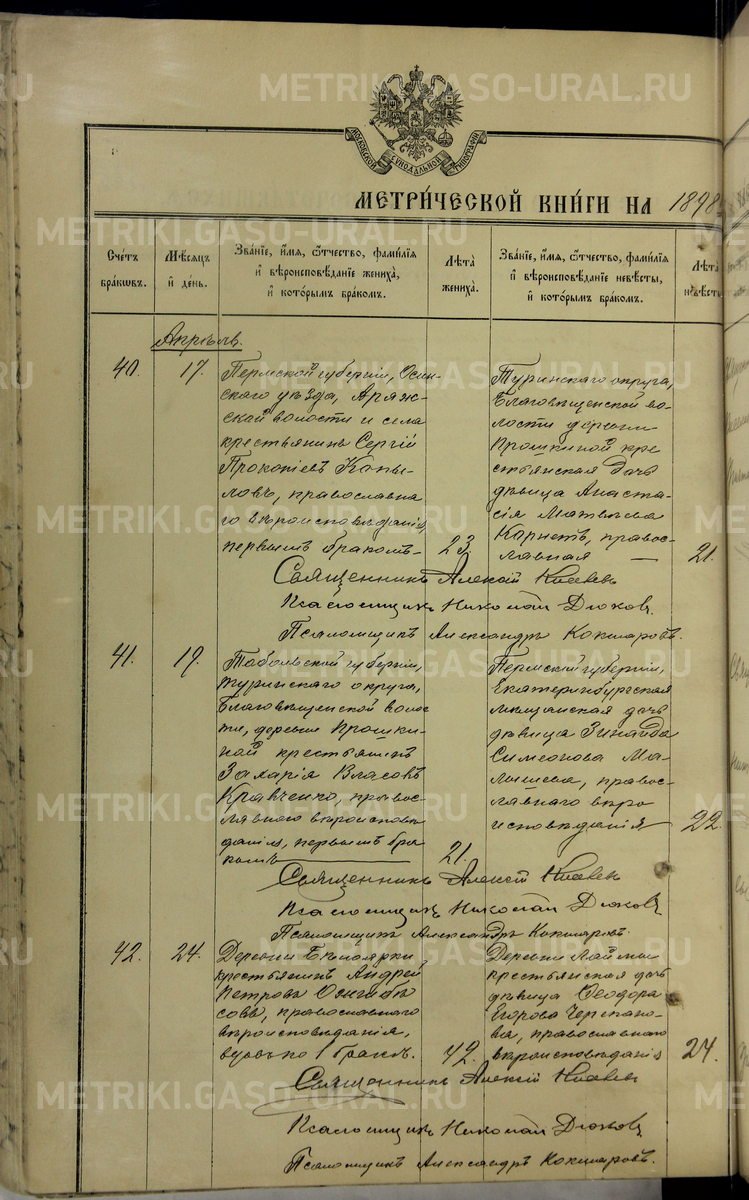 METRIKI.GASO-URAL.RU
МОСКОВСКОЙ СѴНОДАЛЬНОЙ ТИПОГРАФІИ
МЕТРИ́ЧЕСКОЙ КНИ́ГИ НА 1898
Сче́тъ бра́кѡвъ.
Мѣ́сѧцъ и҆ де́нь.
Зва́нїе, и҆́мѧ, ѻ҆́тчество, фами́лїѧ и҆ вѣроисповѣ́данїе жениха̀, и҆ кото́рымъ бра́комъ.
Лѣ́та жениха̀.
Зва́нїе, и҆́мѧ, ѻ҆́тчество, фами́лїѧ и҆ вѣроисповѣ́данїе невѣ́сты, и҆ кото́рымъ бра́комъ.
Лѣ́та невѣ́сты
Апрѣль.
40.
17.
Пермской губерніи, Осин-
скаго уѣзда, Аряж-
ской волости и села
крестьянинъ Сергій
Прокопіевъ Копы-
ловъ, православна
го вѣроисповѣданія,
первымъ бракомъ
23.
Туринскаго округа,
Благовѣщенской во-
лости деревни
Прошкиной кре
стьянская дочь
дѣвица Анаста-
сія Матвѣева
Корнетъ, правос-
лавная
21.
Священникъ Алексій
Псаломщикъ Николай Дюковъ
Псаломщикъ Александръ Кокшаровъ.
41.
19.
Тобольской губерніи,
Туринскаго округа,
Благовѣщенской волос
ти, деревни Прошки-
ной крестьянинъ
Захарія Власовъ
Кравченко, правос-
лавнаго вѣроисповѣ
данія, первымъ бра
комъ
21.
Пермской губерніи,
Екатеринбургская
мѣщанская дочь
дѣвица Зинаида
Симеонова Ма-
лышева, правос-
лавнаго вѣро
исповѣданія
22.
Священникъ Алексій
Псаломщикъ Николай Дюковъ
Псаломщикъ Александръ Кокшаровъ.
42.
24.
Деревни
крестьянинъ Андрей
Петровъ
совъ, православнаго
вѣроисповѣданія,
42.
Деревни
крестьянская дочь
дѣвица Ѳеодора
Егорова Черепано-
ва, православнаго
вѣроисповѣданія
24.
Священникъ Алексій
Псаломщикъ Николай Дюковъ
Псаломщикъ Александръ Кокшаровъ.